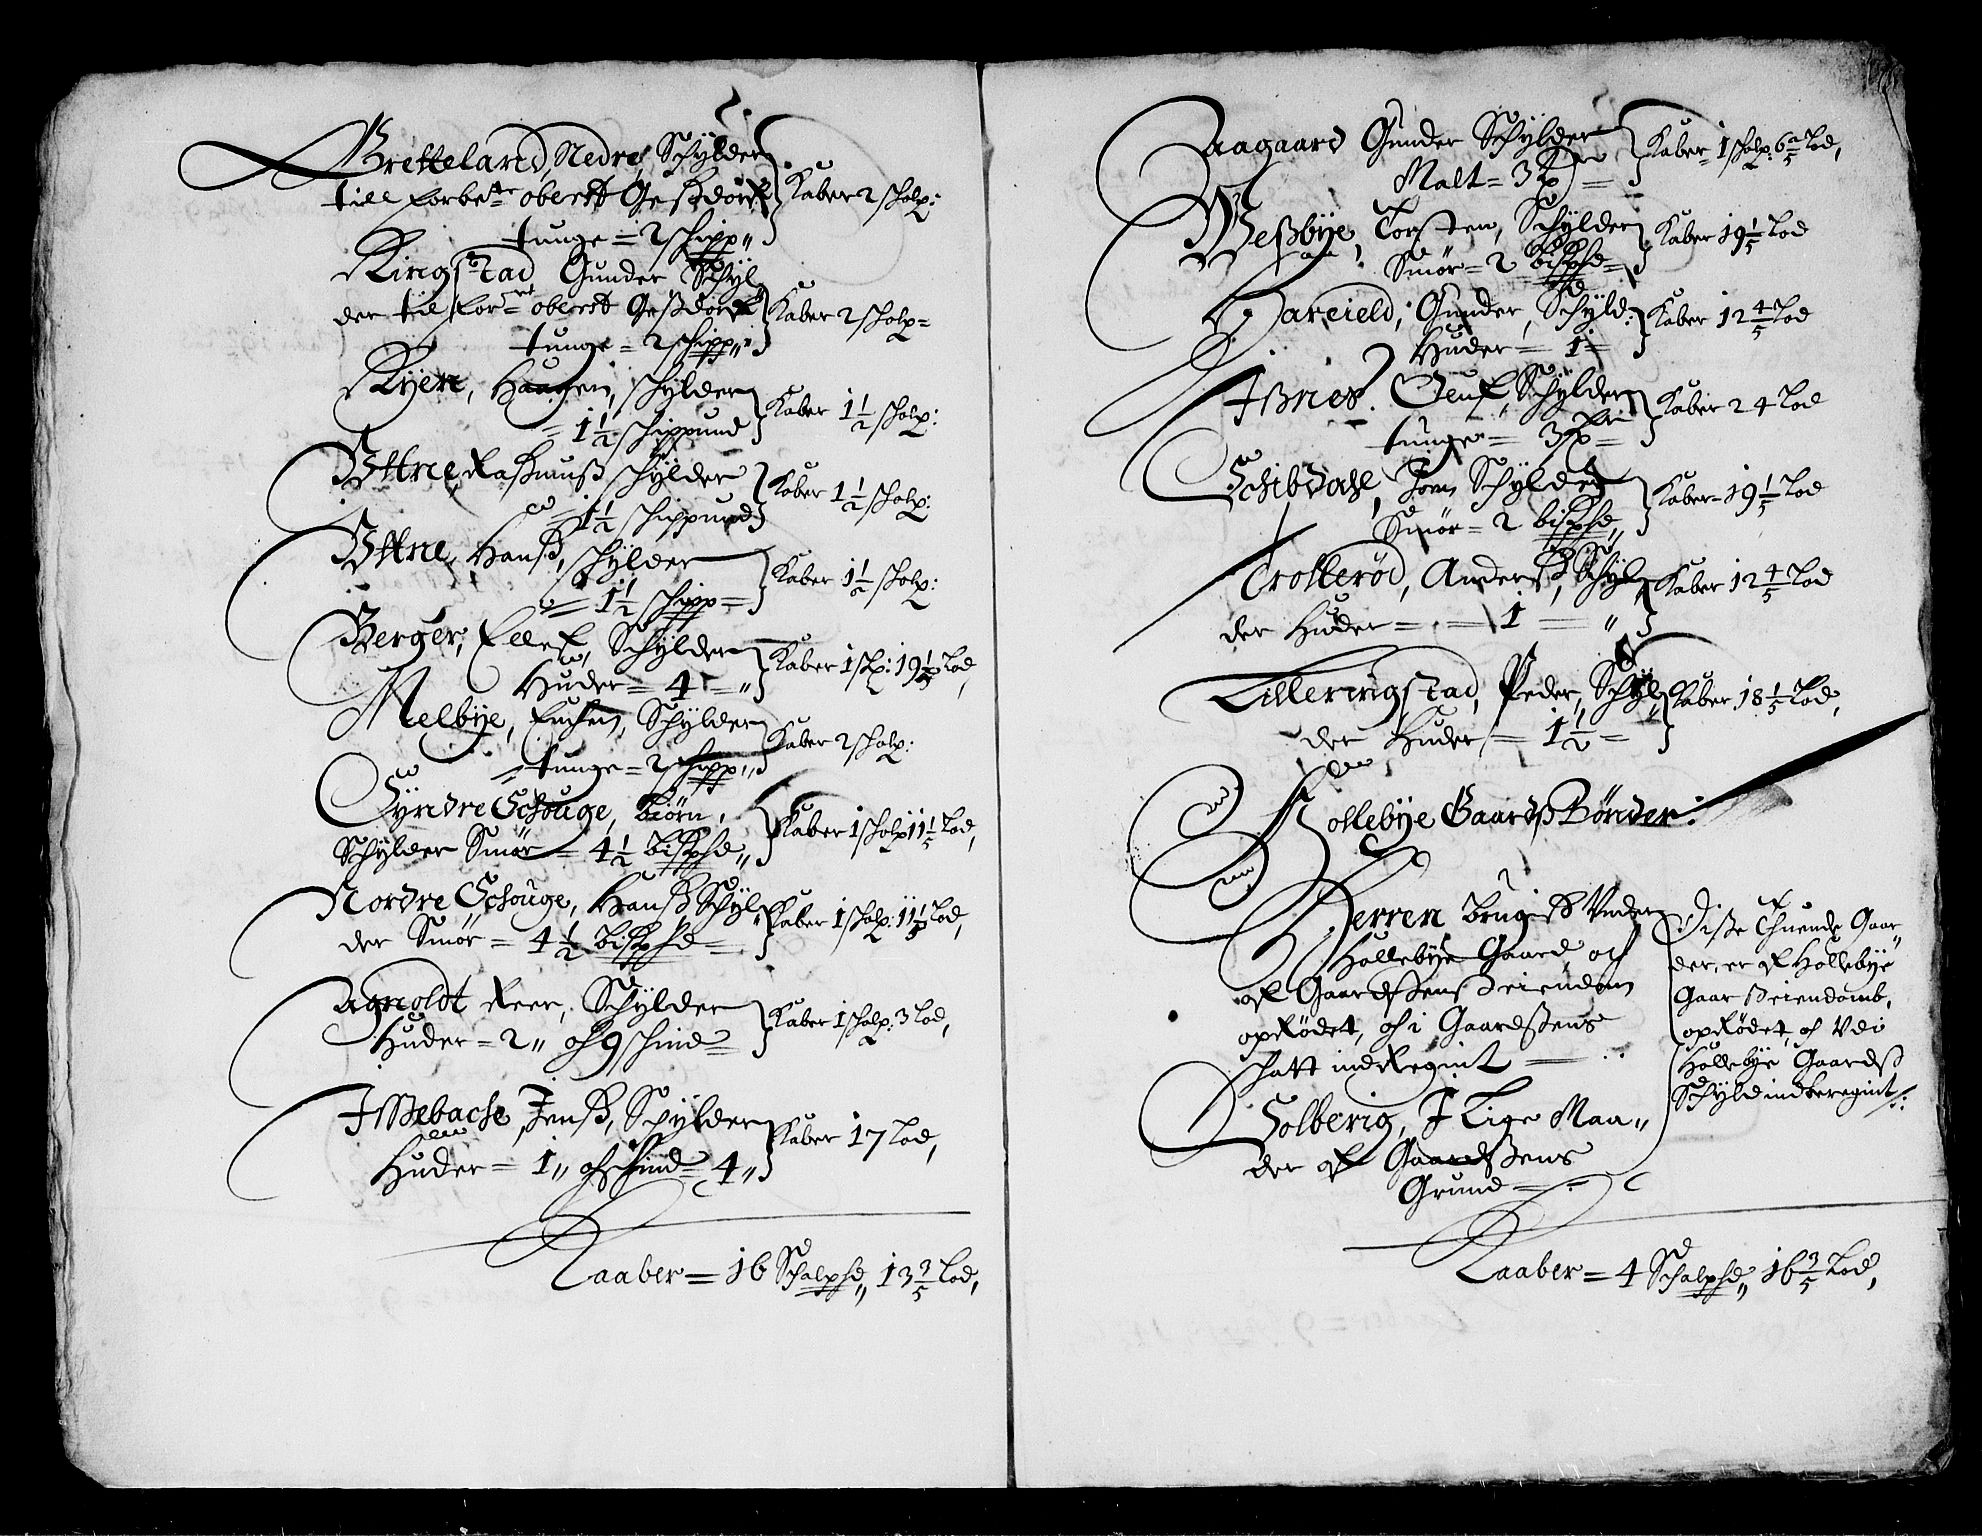 Bretteland, Nedre, Schylder
till forbete oberst Gesdorf
tunge = 2 schipp"
Kaaber 2 schalp:
Ringstad Gunder Schyl
der til forne oberst Gesdorf
tunge = 2 schipp"
Kaaber 2 schalp=
Ryen, Haagen, schylder
= 1½ schippund
Kaaber 1½ schalp:
Ottne, Rasmuss schylder
= 1½ schippund
Kaaber 1½ schalp:
Ottne, Hanss, schylder
= 1½ schipp=
Kaaber 1½ schalp:
Berger, Ellef, Schylder
Huder = 4 = "
Kaaber 1 sklp: 19 1/5 Lod,
Melbye, Schylder
= tunge = 2 schipp"
Kaaber 2 schalp:
Syndre Schouge, Biørn,
Schylder Smør = 4½ bisphd"
Kaaber 1 schalp 11 1/5 Lod,
Nordre Schouge, Hanss Schyl
der Smør = 4½ Bisphd =
Kaaber 1 schalp: 11 1/5 Lod,
Agnoldt Reer, Schylder
Huder = 2" oc 9 schind =
Kaaber 1 schalp: 3 Lod,
Issebache Jenss, Schylder
Huder = 1" oc schind 4"
Kaaber 17 Lod,
Kaaber = 16 Schalphd" 13 3/5 Lod,
Aagaard Gunder Schylder
Malt = 3
Kaber = 1 schalp: 6 2/5 Lod,
Wessbye, Torsten, Schylder
Smør = 2 bisphd =
Kaber 19 1/5 Lod
Gunder, Schyld:
Huder = 1 =
Kaber 12 4/5 Lod
Issnes, Oluf, Schylder
tunge = 3
Kaber 24 Lod
Schibdahl, Joen Schylder
Smør = 2 bisphd"
Kaber = 19 1/5 Lod
Trollerød, Anderss, Schyl
der Huder = = 1 = "
Kaber 12 4/5 Lod
Lilleringstad, Peder, Schyl
der Huder = 1½ =
Kaber 18 1/5 Lod,
Hollebye Gaardss Bønder:
Herren, brugis Under
Hollebye Gaard oc
af Gaardssens Eiendom
opRødet, oc i Gaardssens
schatt indRegnit
Solberig, I Lige Maa"
der af Gaardssens
Grund =
Disse Thuende Gaar
der, er af Hollebye
Gaardss Eiendomb,
opRødet, oc Udi
Hollebye Gaardss
Schyld indberegnit/:
Kaaber = 4 Schalphd" 16 3/5 Lod,